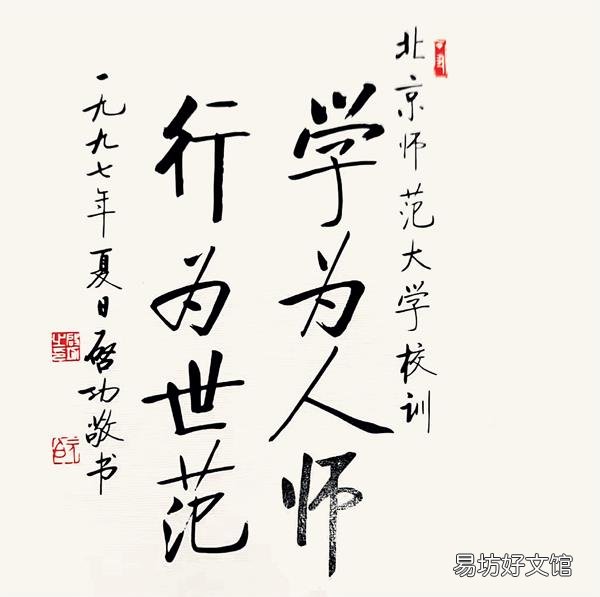 北京师范大学校训
学为人师
行为世范
一九九七年夏日启功敬书
易坊好文馆